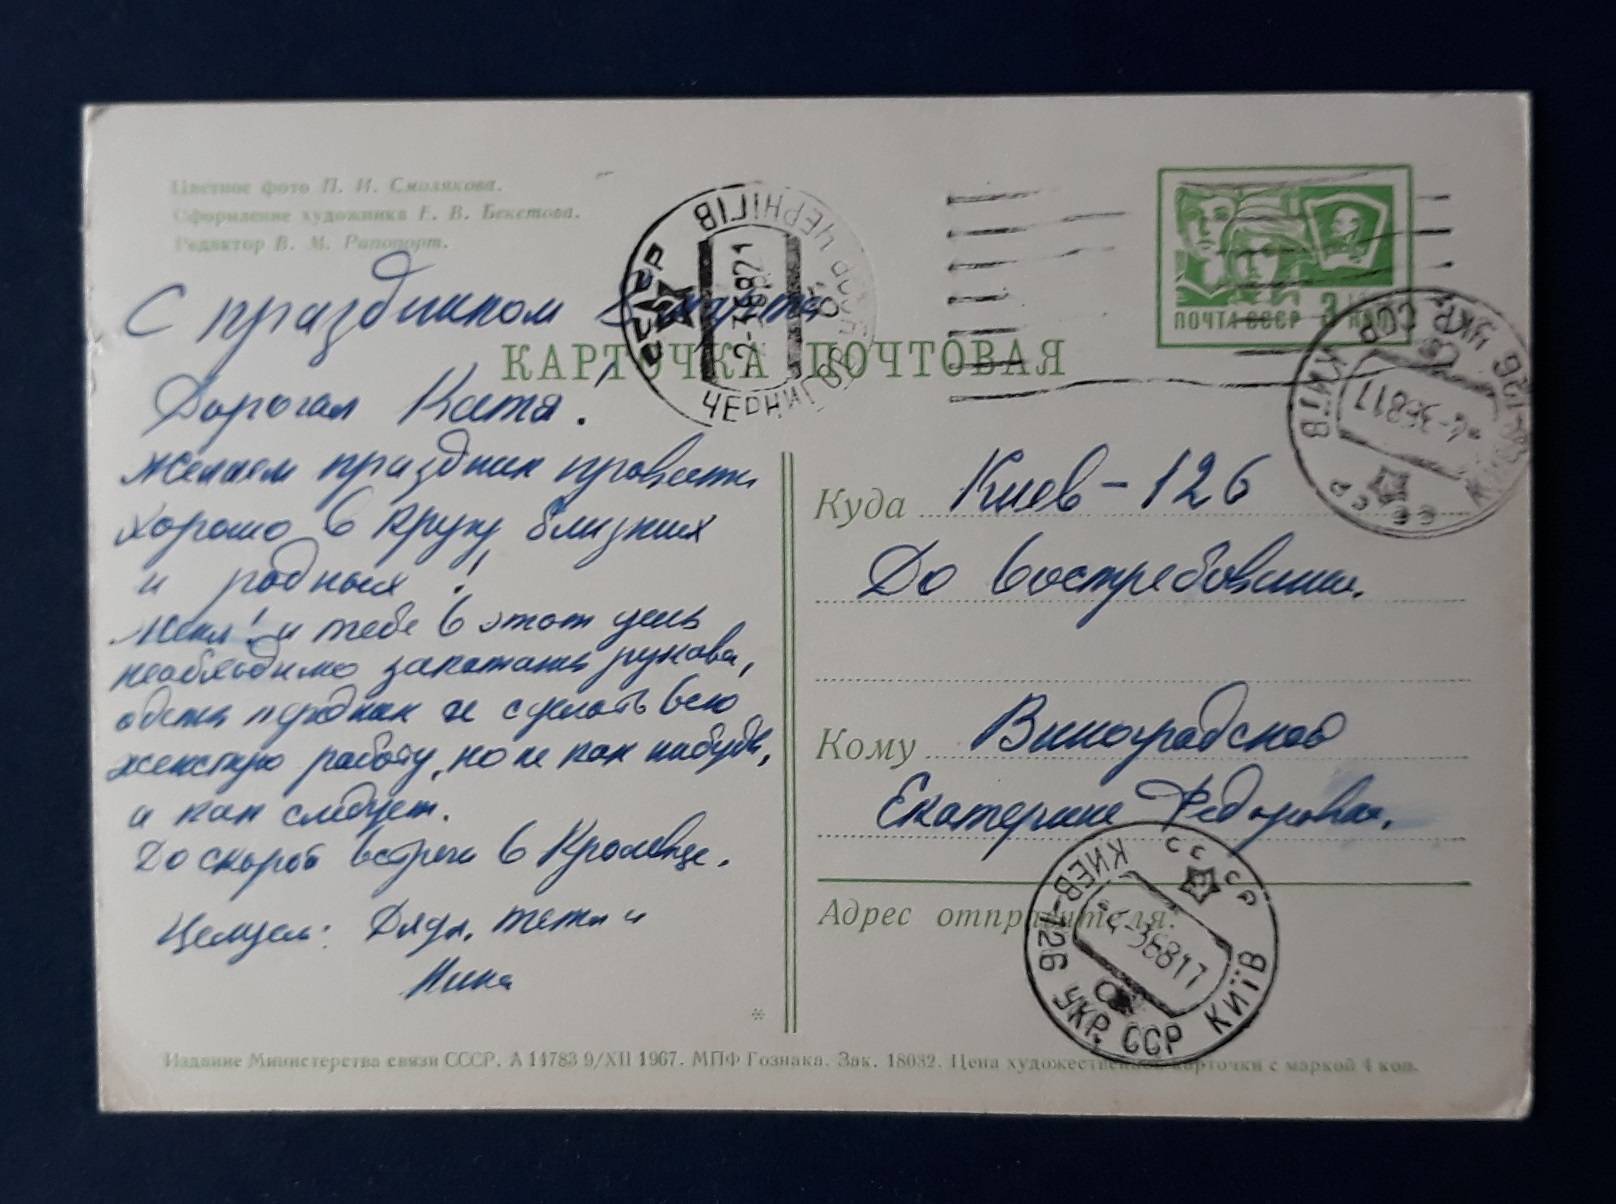 Цветное фото П. И. Смолякова.
Оформление художника Е. В. Бекетова.
Редактор В. М. Рапопорт.
С праздником 8 марта
Дорогая Катя!
Желаем праздник провести
хорошо в кругу близких
и родных!
Женя! и тебе в этот день
необходимо закатать рукава,
одеть передник и сделать всю
женскую работу, но не как нибудь,
а как следует.
До скорой встречи в Кролевце.
Целуем: Дядя, тетя и
Нина
КАРТОЧКА ПОЧТОВАЯ
ЧЕРНІГІВ
СССР
2-3 68 21
ЧЕРНИГОВ
ПОЧТА СССР 3 КОП
КИЇВ УКР. ССР
4-3 68 17
СССР
Куда Киев-126
До востребования.
Кому Виноградской
Екатерине Федоровне.
Адрес отправителя:
КИЕВ-126 УКР. ССР КИЇВ
СССР
4-3 68 17
Издание Министерства связи СССР. А 14783 9/XII 1967. МПФ Гознака. Зак. 18032. Цена художественной карточки с маркой 4 коп.